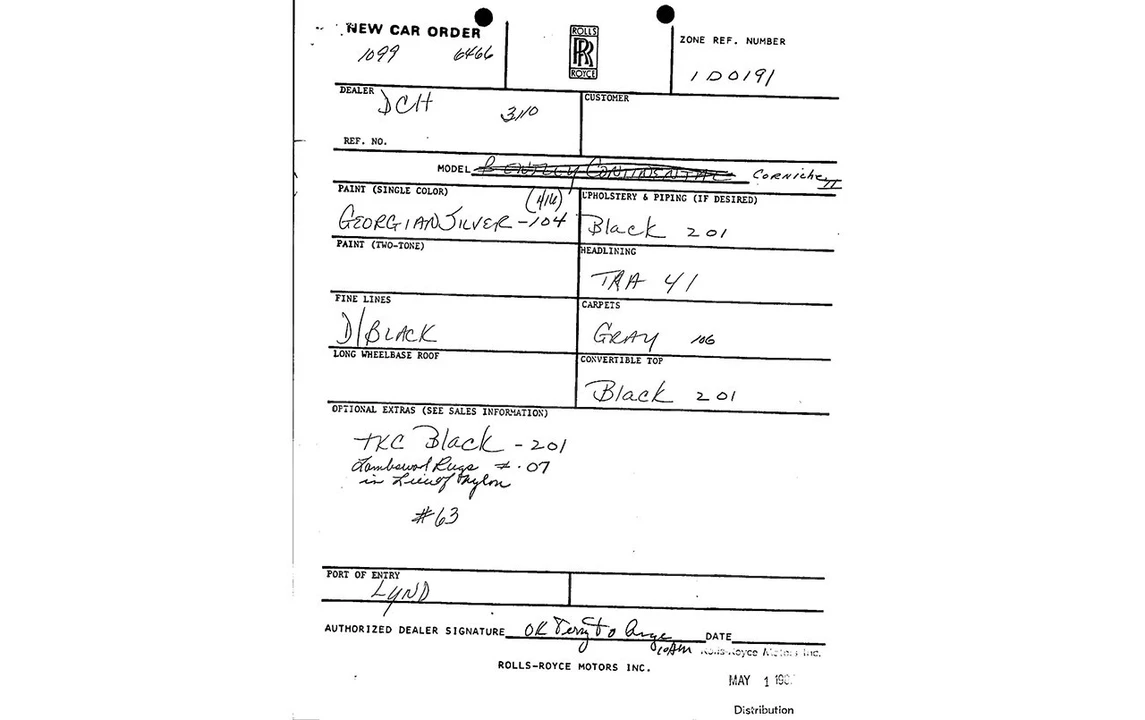 NEW CAR ORDER
1099 6466
ROLLS
RR
ROYCE
ZONE REF. NUMBER
1D0191
DEALER DCH 3110
REF. NO.
CUSTOMER
MODEL Bentley Continental Corniche II
PAINT (SINGLE COLOR) (416)
GEORGIAN SILVER - 104
UPHOLSTERY & PIPING (IF DESIRED)
Black 201
PAINT (TWO-TONE)
HEADLINING
TRA 41
FINE LINES
D/BLACK
CARPETS
GRAY 106
LONG WHEELBASE ROOF
CONVERTIBLE TOP
Black 201
OPTIONAL EXTRAS (SEE SALES INFORMATION)
TKC Black - 201
Lambswool Rugs #.07
in Lieu of Nylon
#63
PORT OF ENTRY
LYND
AUTHORIZED DEALER SIGNATURE OK Terry to 10AM DATE
Rolls-Royce Motors Inc.
ROLLS-ROYCE MOTORS INC.
MAY 1
Distribution